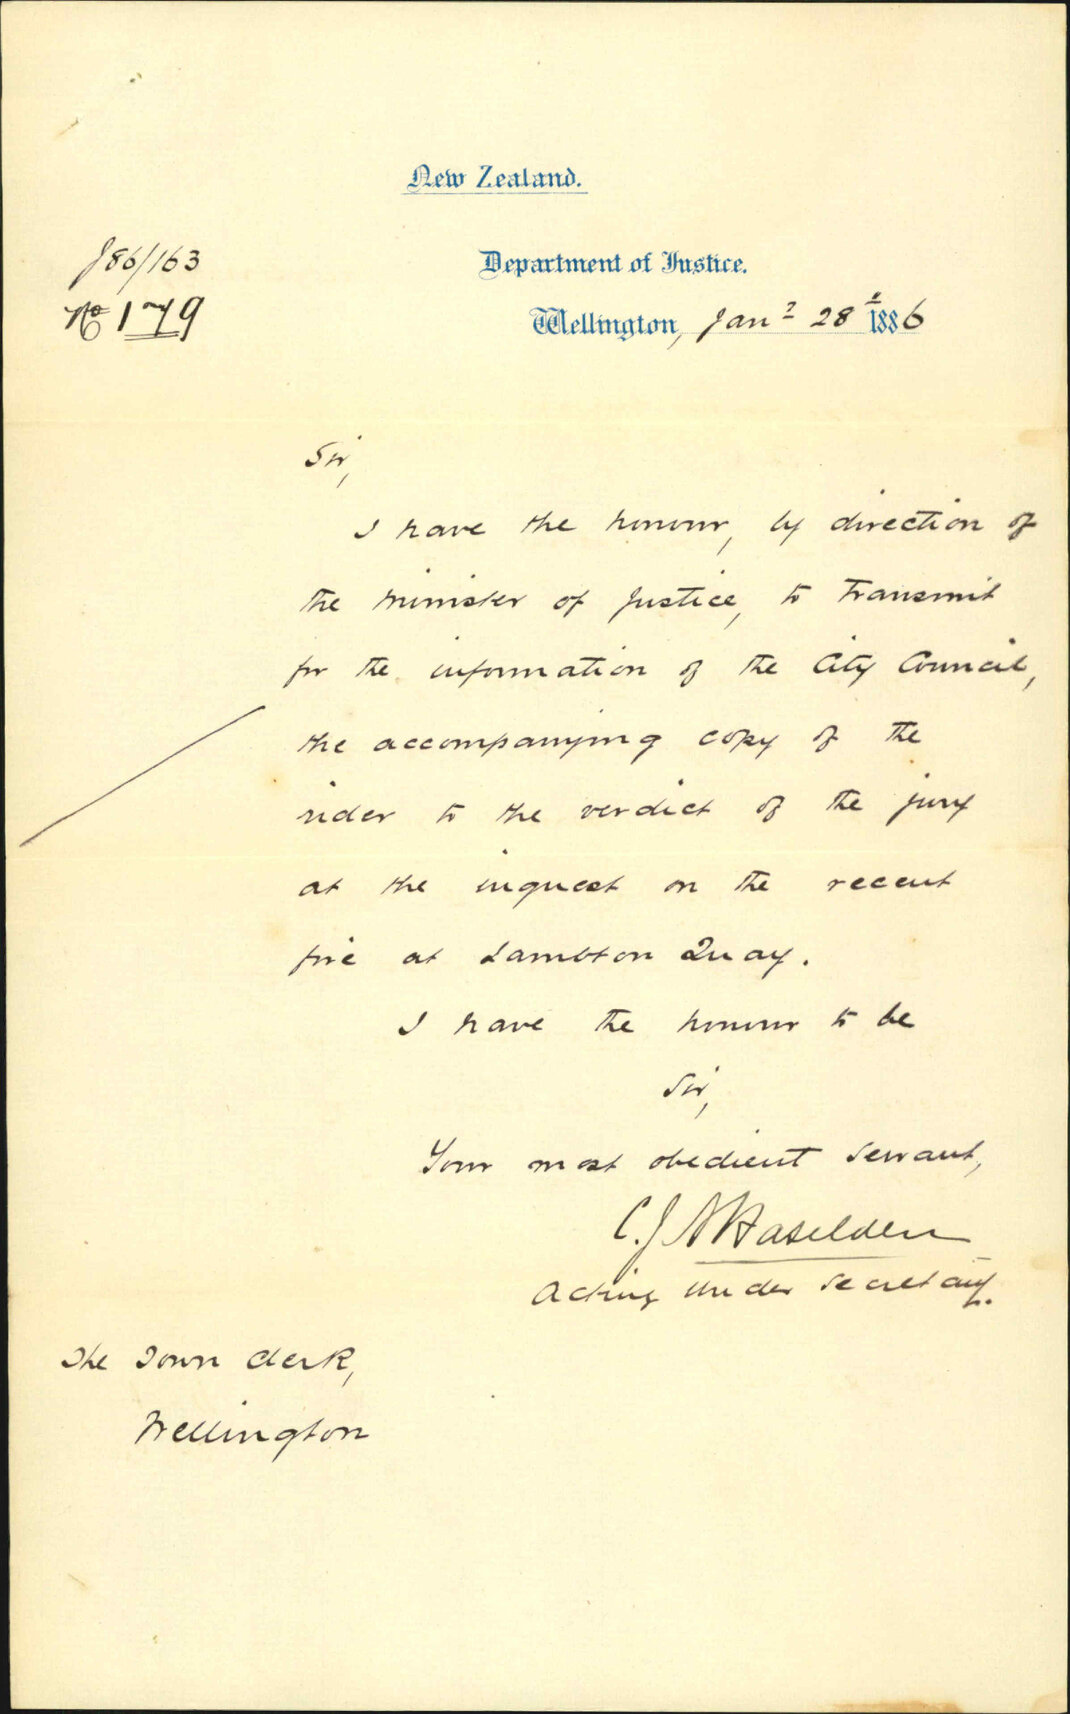 New Zealand.
J86/163
No 179
Department of Justice.
Wellington, Jany 28th 1886
Sir,
I have the honour, by direction of
the Minister of Justice, to transmit
for the information of the City Council,
the accompanying copy of the
rider to the verdict of the jury
at the inquest on the recent
fire at Lambton Quay.
I have the honour to be
Sir,
Your most obedient servant,
C.J.A. Haselden
Acting Under Secretary.
The Town Clerk,
Wellington